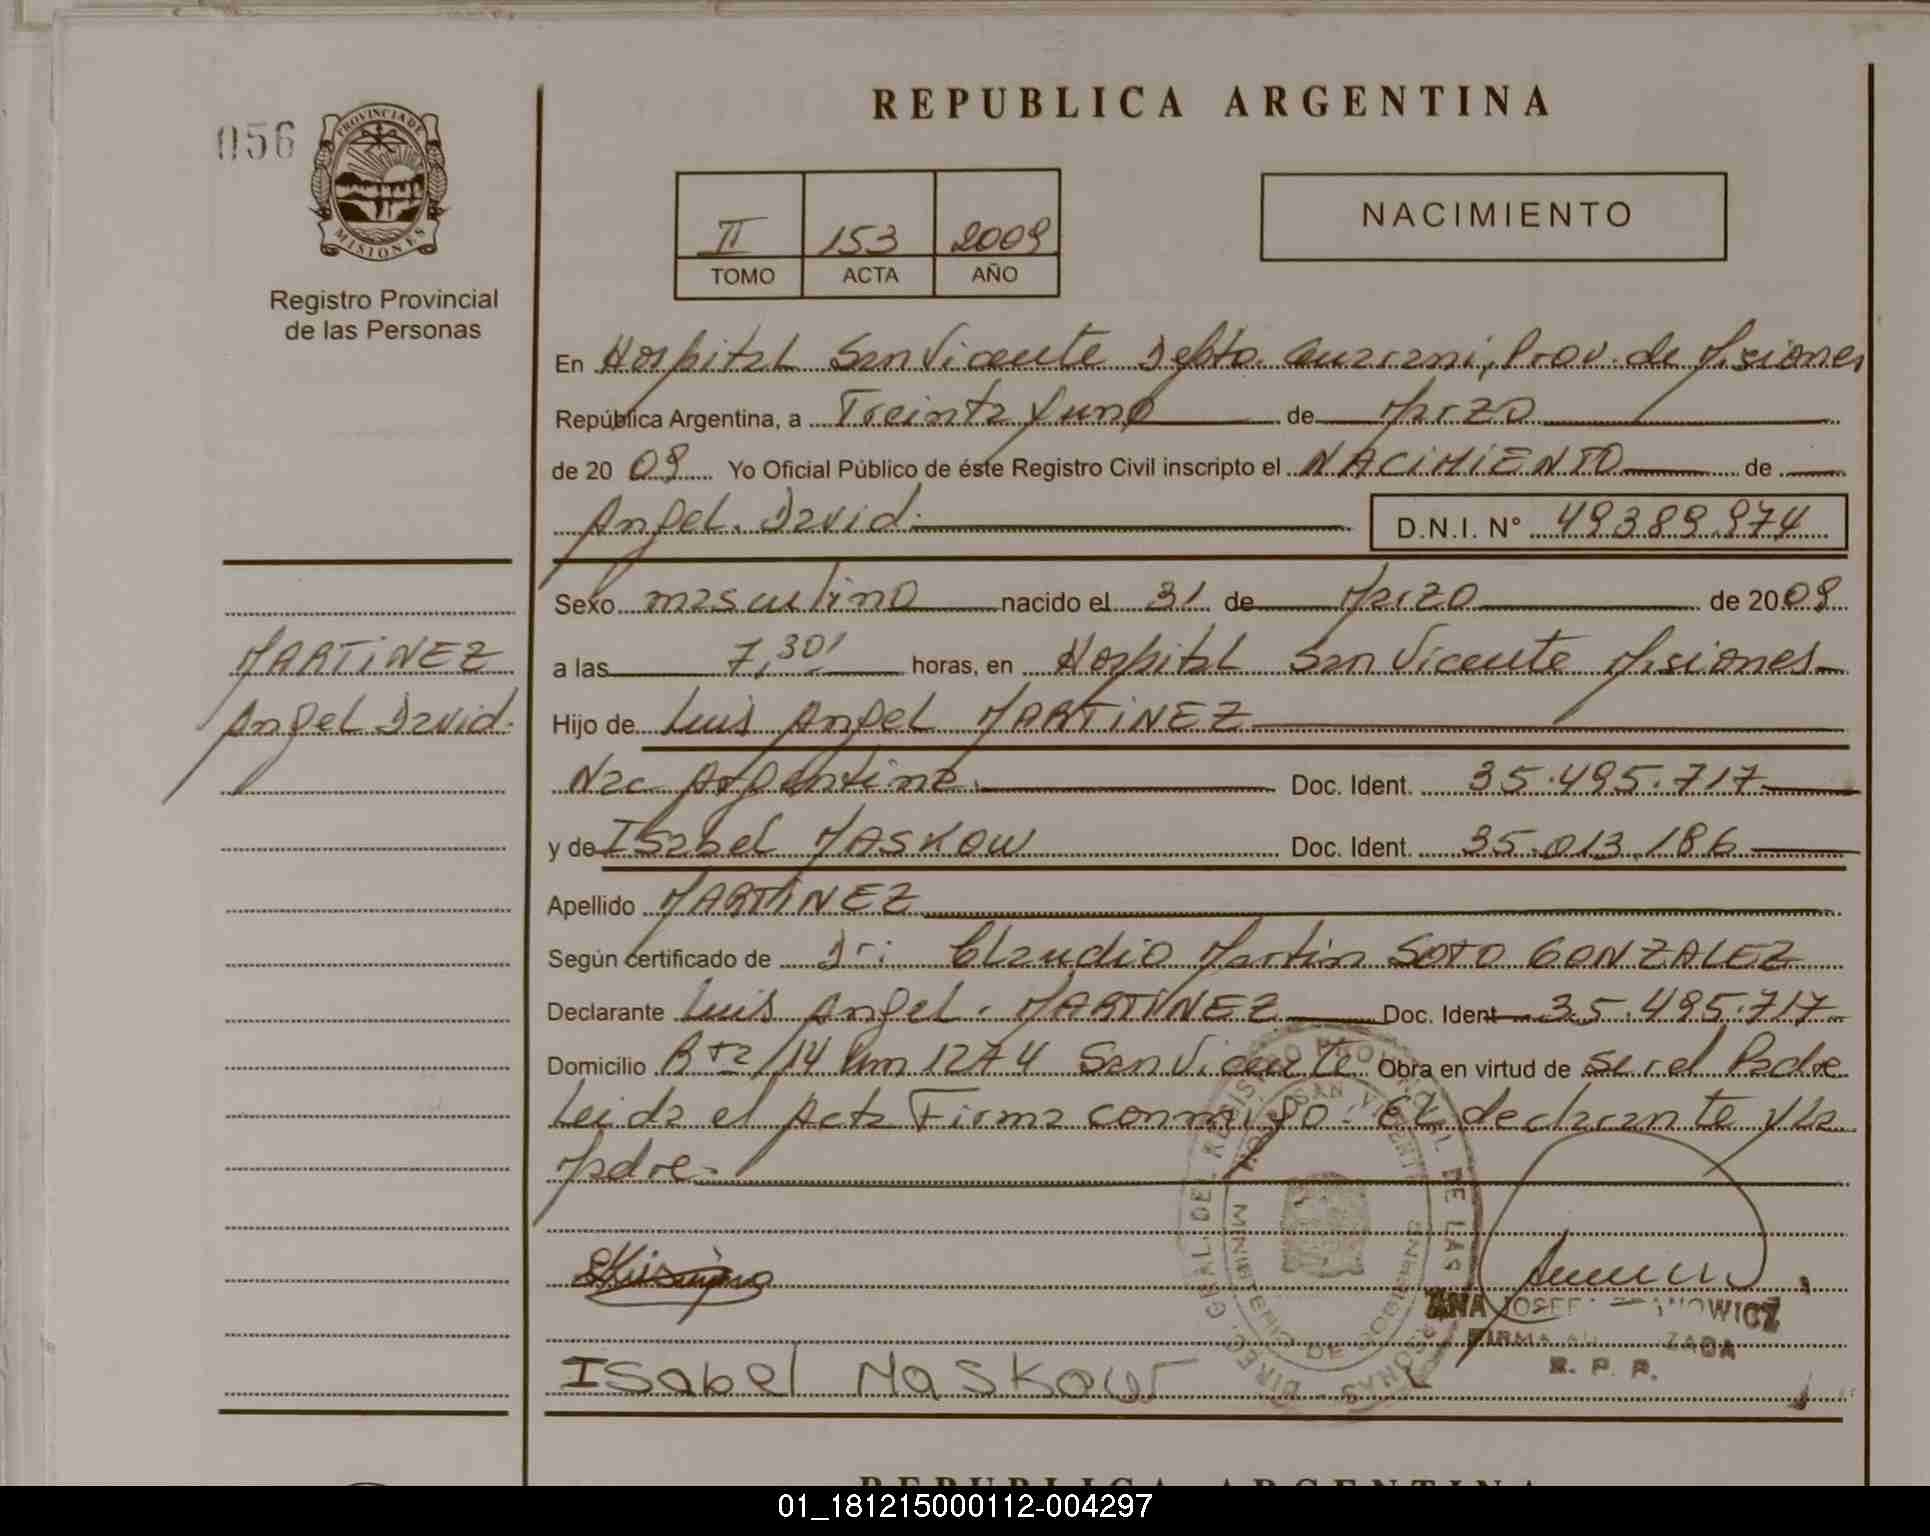 REPUBLICA ARGENTINA
056
PROVINCIA DE
MISIONES
Registro Provincial
de las Personas
NACIMIENTO
II 153 2009
TOMO ACTA AÑO
En Hospital San Vicente Depto. Guarani, Prov. de Misiones
República Argentina, a Treinta y uno de Marzo
de 20 09 Yo Oficial Público de éste Registro Civil inscripto el NACIMIENTO de
Angel David D.N.I. N° 49389.974
Sexo masculino nacido el 31 de Marzo de 2009
a las 7,30' horas, en Hospital San Vicente Misiones
MARTINEZ
Angel David
Hijo de Luis Angel MARTINEZ
Nac Argentina Doc. Ident. 35.495.717
y de Isabel MASKOW Doc. Ident. 35.013.186
Apellido MARTINEZ
Según certificado de Dr: Claudio Martin SOTO GONZALEZ
Declarante Luis Angel MARTINEZ Doc. Ident 35.495.717
Domicilio Rta 14 km 1274 San Vicente Obra en virtud de ser el Padre
Leida el Acta Firma conmigo: El declarante y la
Madre
ANA JOSEF
FIRMA
R. P. P.
Isabel Maskow
REPUBLICA ARGENTINA
01_181215000112-004297